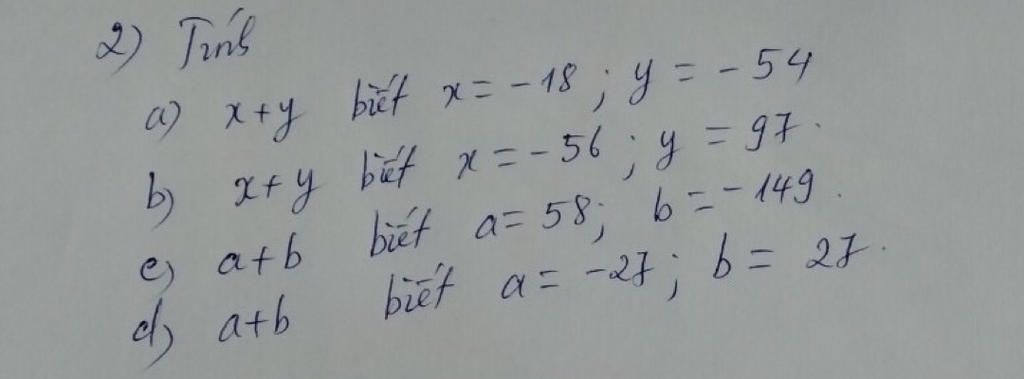 2) Tính
a) x+y biết x = -18 ; y = -54
b) x+y biết x = -56 ; y = 97.
c) a+b biết a = 58; b = -149.
d) a+b biết a = -27; b = 27.